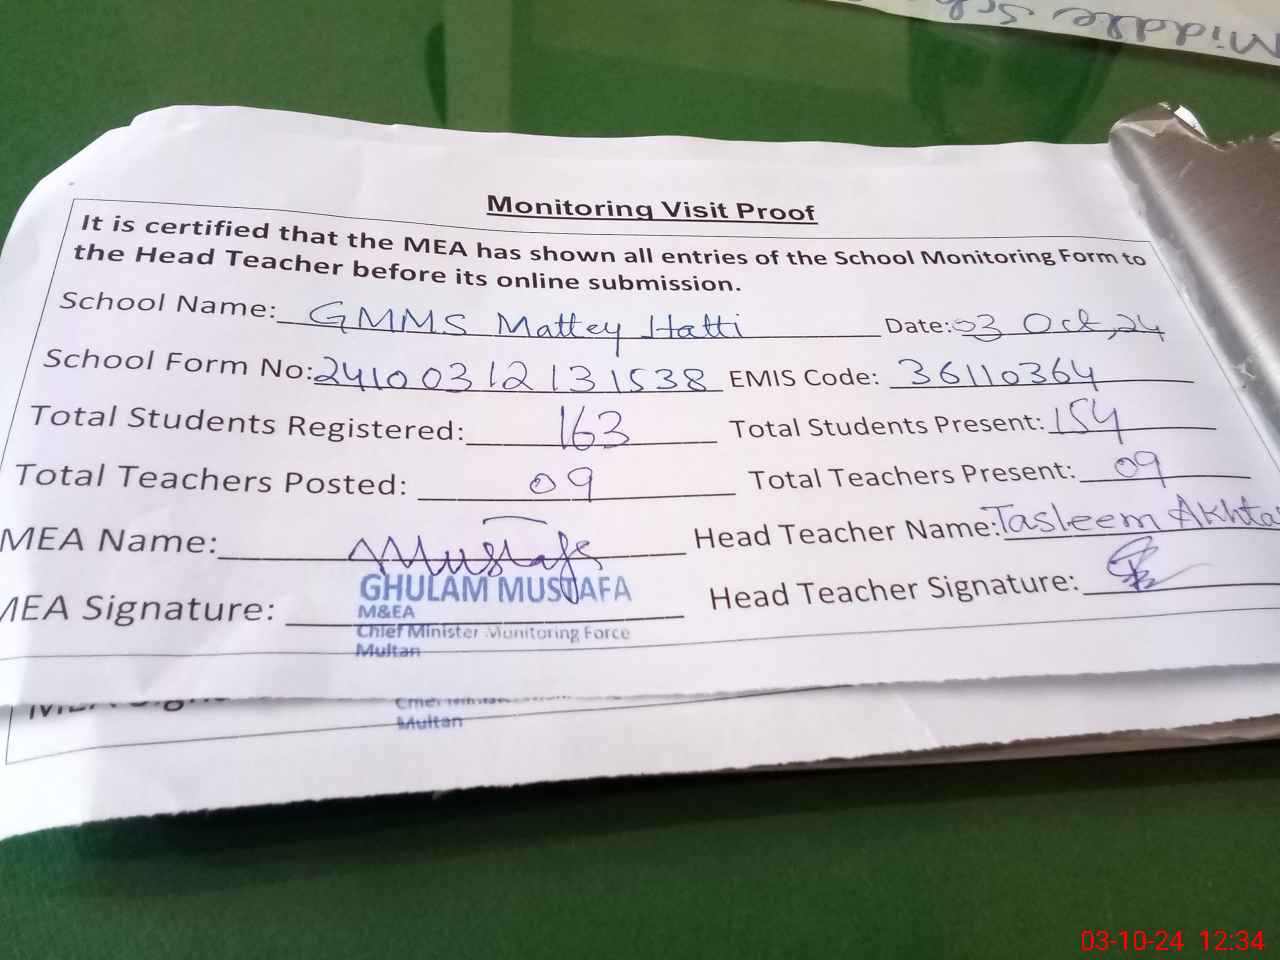 Middle Sch
Monitoring Visit Proof
It is certified that the MEA has shown all entries of the School Monitoring Form to
the Head Teacher before its online submission.
School Name: GMMS Mattey Hatti Date: 03 Oct, 24
School Form No: 24100312131538 EMIS Code: 36110364
Total Students Registered: 163 Total Students Present: 154
Total Teachers Posted: 09 Total Teachers Present: 09
MEA Name: Mustafa Head Teacher Name: Tasleem Akhta
MEA Signature: Head Teacher Signature:
GHULAM MUSTAFA
M&EA
Chief Minister Monitoring Force
Multan
Multan
03-10-24 12:34